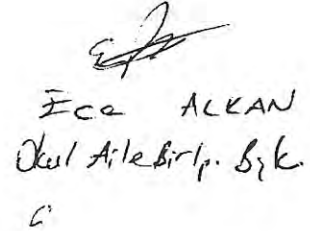 Ece ALKAN
Okul Aile Birl. Bşk.